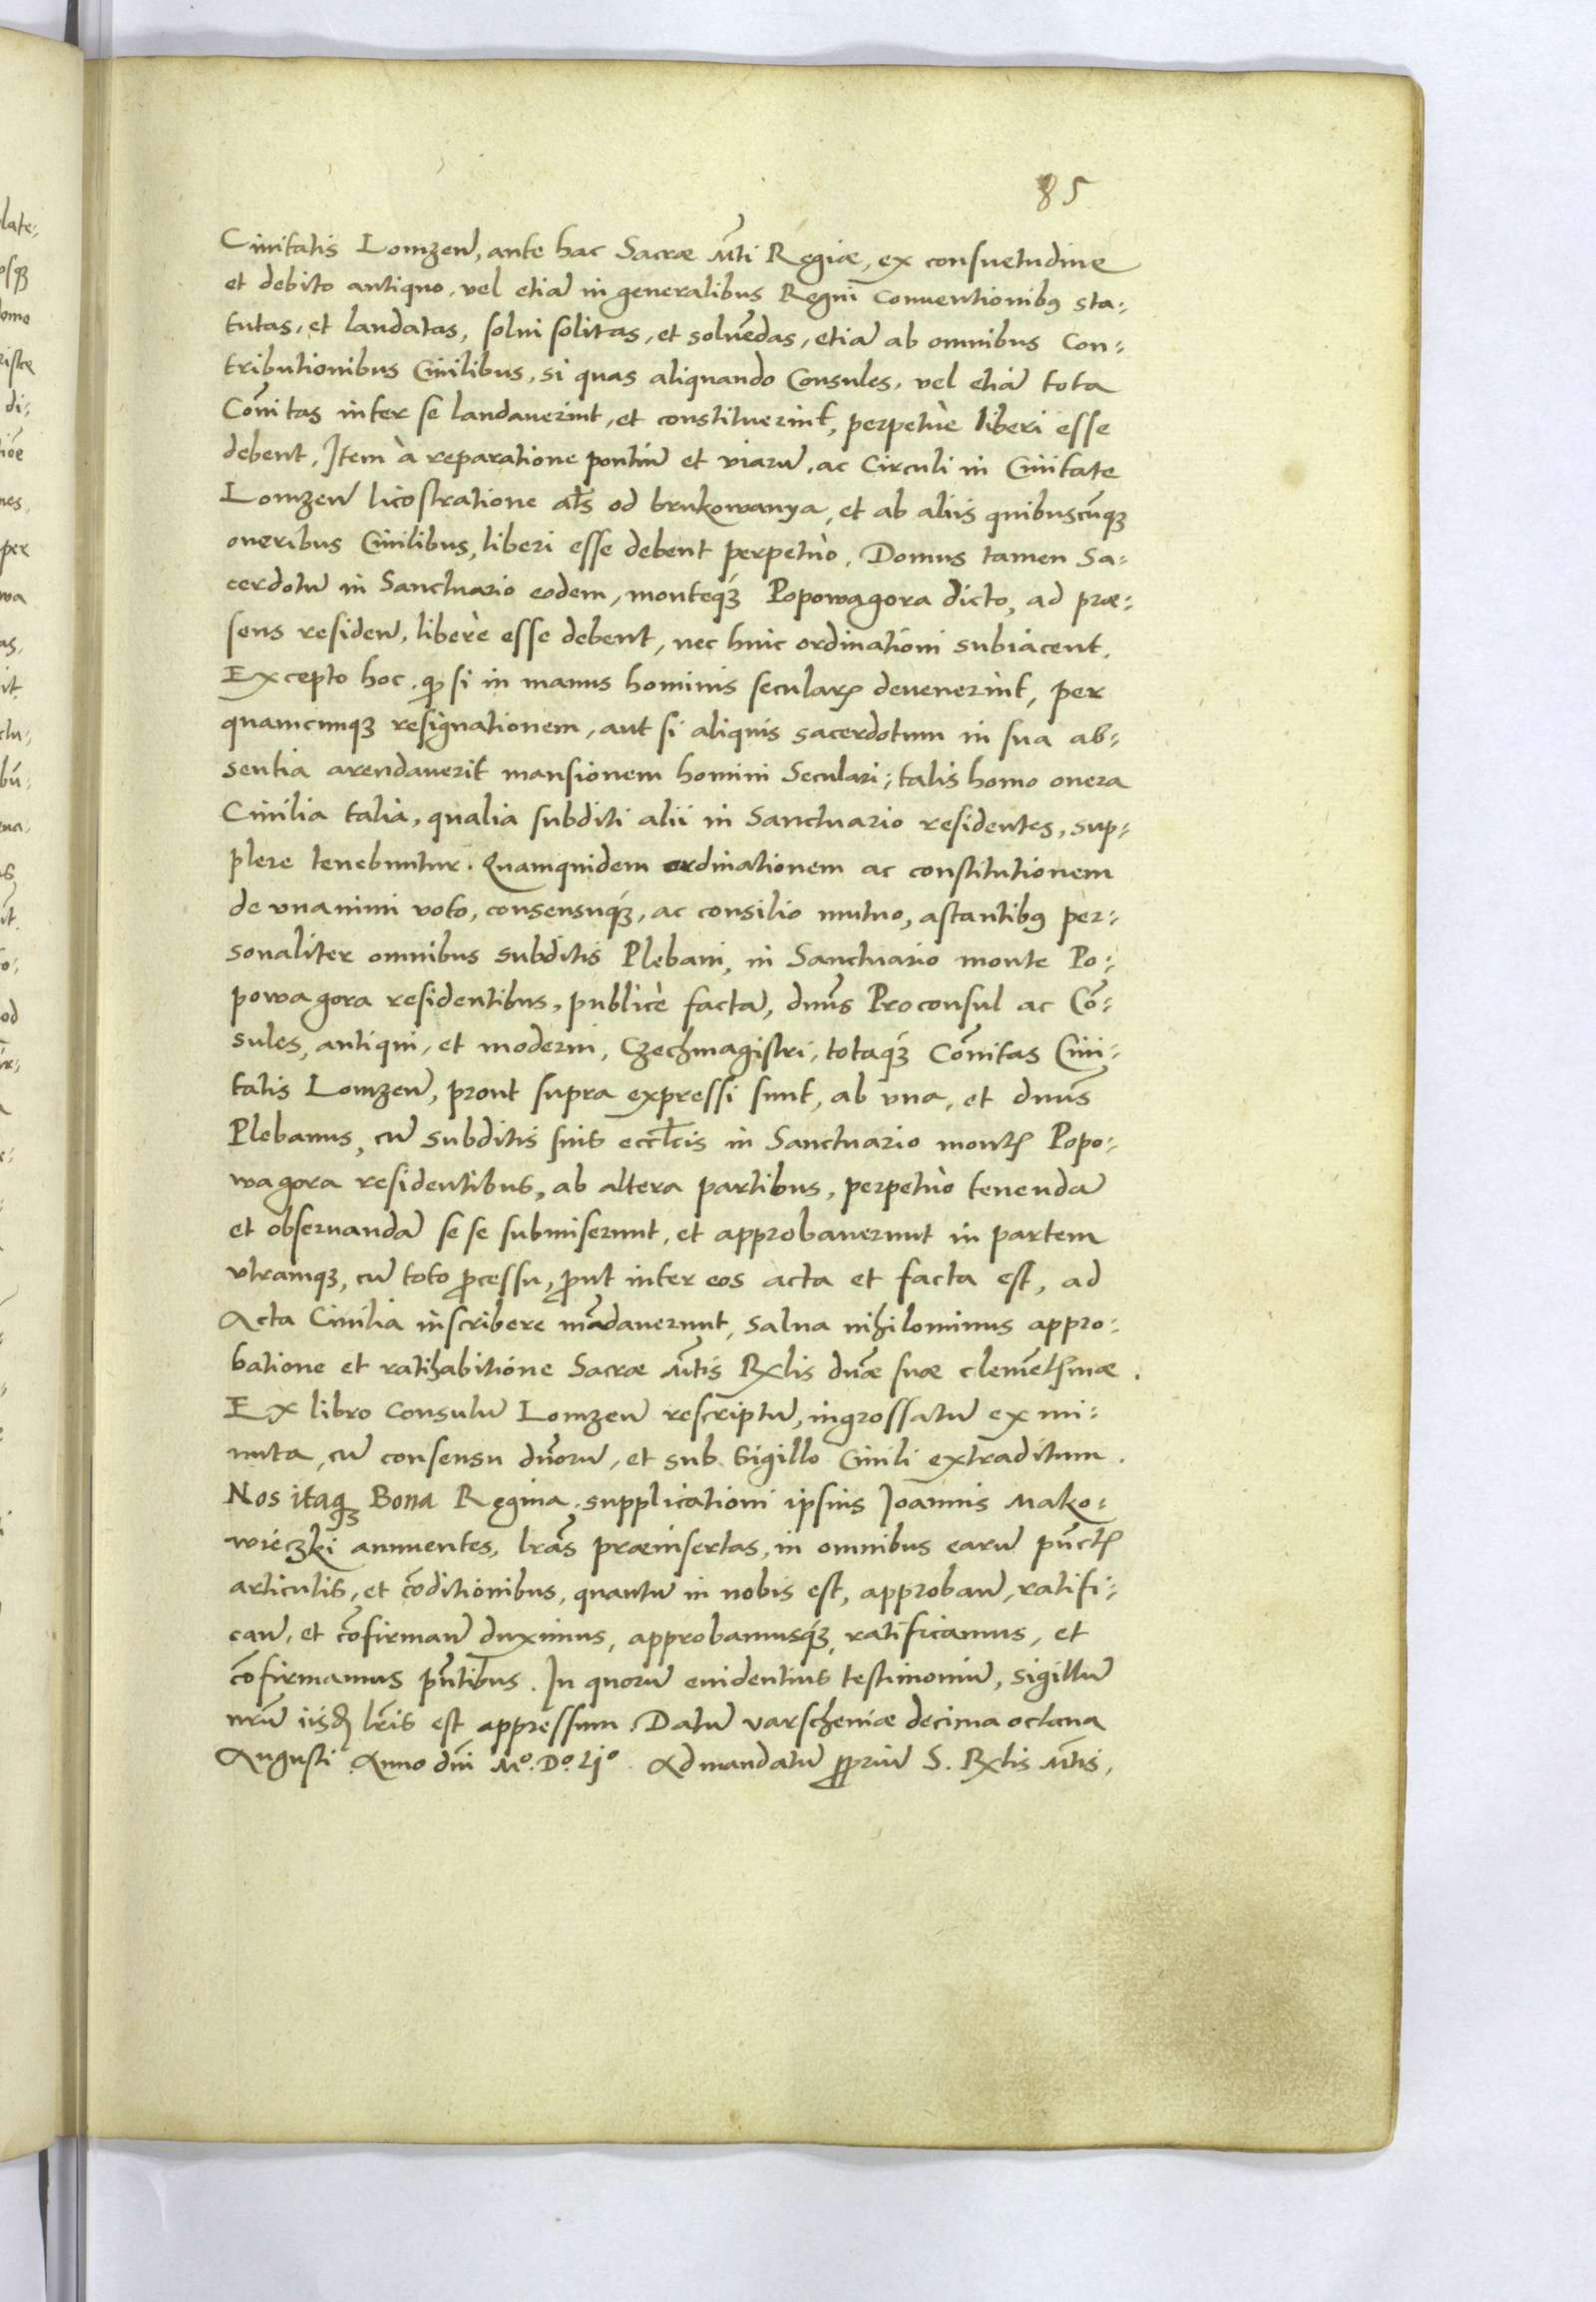 85
Ciuitatis Lomzeñ, ante hac Sacræ Mti Regiæ, ex consuetudine
et debito antiquo, vel etiã in generalibus Regni Conuentionibꝰ sta:
tutas, et laudatas, solui solitas, et soluẽdas, etiã ab omnibus Con:
tributionibus Ciuilibus, si quas aliquando Consules, vel etiã tota
Cõitas inter se laudauerint, et constituerint, perpetuè liberi esse
debent. Item à reparatione pontiũ et viarũ, ac Circuli in Ciuitate
Lomzeñ licostratione als od brukowanya, et ab aliis quibuscũqꝫ
oneribus Ciuilibus, liberi esse debent perpetuò. Domus tamen Sa:
cerdotũ in Sanctuario eodem, monteqꝫ Popowagora dicto, ad præ:
sens resideñ, liberè esse debent, nec huic ordinationi subiacent.
Excepto hoc, ꝙ si in manus hominis secularꝭ deuenerint, per
quamcunqꝫ resignationem, aut si aliquis sacerdotum in sua ab:
sentia arendauerit mansionem homini Seculari; talis homo onera
Ciuilia talia, qualia subditi alii in Sanctuario residentes, sup:
plere tenebuntur. Quamquidem ordinationem ac constitutionem
de vnanimi voto, consensuqꝫ, ac consilio mutuo, astantibꝰ per:
sonaliter omnibus subditis Plebani, in Sanctuario monte Po:
powagora residentibus, publicè factã, dnus Proconsul ac Cõ:
sules, antiqui, et moderni, Czechmagistri, totaqꝫ Cõitas Ciui:
tatis Lomzeñ, prout supra expressi sunt, ab vna, et dnus
Plebanus, cũ subditis suis eccl̃cis in Sanctuario montꝭ Popo:
wagora residentibus, ab altera partibus, perpetuò tenendã
et obseruandã se se submiserunt, et approbauerunt in partem
vtramqꝫ, cũ toto ꝓcessu, ꝓut inter eos acta et facta est, ad
Acta Ciuilia inscribere mãdauerunt, salua nihilominus appro:
batione et ratihabitione Sacræ Mtis Rxlis dnæ suæ clemẽtꝭmæ.
Ex libro Consulũ Lomzeñ rescriptũ, ingrossatũ ex mi:
nuta, cũ consensu dnorũ, et sub Sigillo Ciuili extraditum.
Nos itaqꝫ Bona Regina, supplicationi ipsius Joannis Mako:
wieczki annuentes, lras præinsertas, in omnibus earũ pũctꝭ
articulis, et cõditionibus, quantũ in nobis est, approbañ, ratifi:
cañ, et cõfirmañ duximus, approbamusqꝫ, ratificamus, et
cõfirmamus pñtibus. In quorũ euidentius testimoniũ, sigillũ
nr̃ũ iisdꝭ lr̃is est appressum. Datũ varscheuiæ decima octaua
Augusti Anno dñi Mº. Dº. Ljº. Ad mandatũ ꝓpriũ S. Rxlis Mtis.